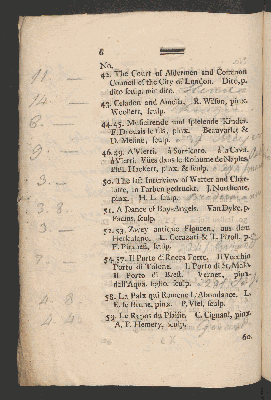 6
No.
42. The Court of Aldermen and Common
Council of the City of London. Dito, p.
dito sculp. mit dito.
43. Celadon and Amelia. R. Wilson, pinx.
Woollett, sculp.
44. 45. Musicirende und spielende Kinder.
F. Drouais le fils, pinx. Beauvarlet &
sculp.
46. 49. A Vietri. à Sorriento. à la Cava.
à Vietri. Vües dans le Roiaume de Naples,
Phil. Hackert, pinx. & sculp.
50. The last Interview of Werter and Char-
lotte, in Farben gedruckt. J. Northcote,
pinx. sculp.
51. A Dance of Boy-Angels. Van Dyke, p.
sculp.
52. 53. Zwey antique Figuren, aus dem
Herculano.
sculp.
54. 57. Il Porto di Rocca Forte. Il Vecchio
Porto di Il Porto di
Il Porto di Vernet, pinx.
dell'Aqua, sculp.
58. La Paix qui Ramene L'Abondance. L.
E. le Brune, pinx. P. Viel, sculp.
59. Le Repos du Plaisir. C. Cignani, pinx.
A. F. Hemery, sculp.
60.
11. —
14. —
6. —
9. —
3. —
3. 8.
3. —
4. 8
4. 4